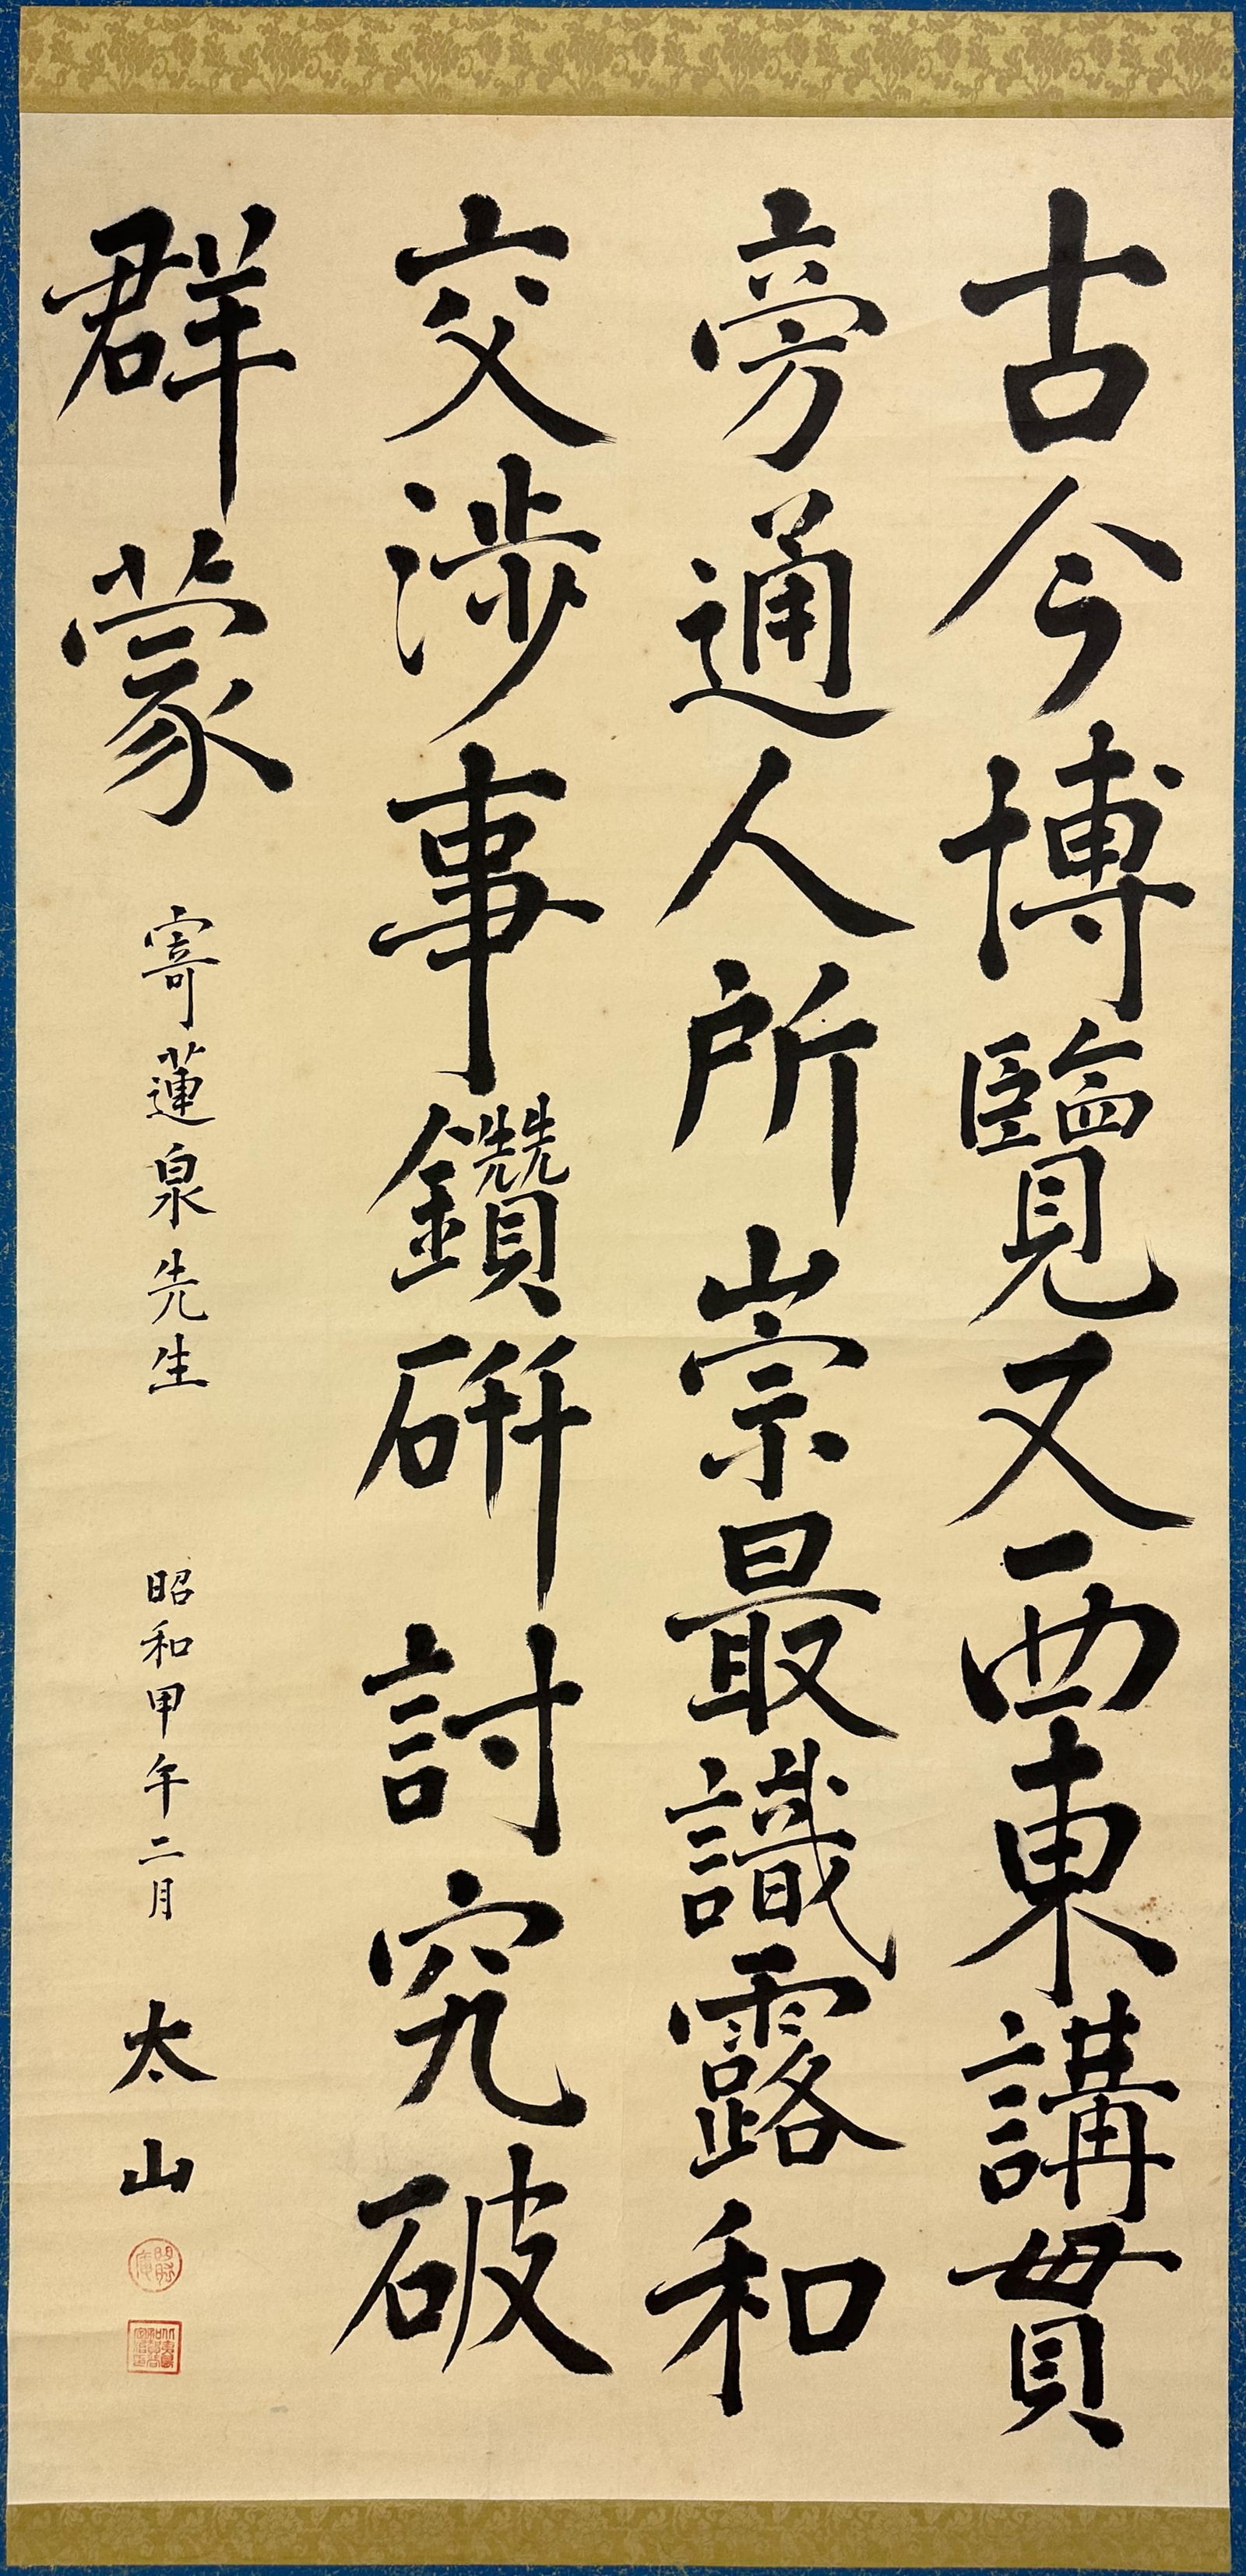 古今博覽又西東講貫
旁通人所崇最識露和
交渉事鑽硏討究破
群蒙
寄蓮泉先生
昭和甲午二月
太山